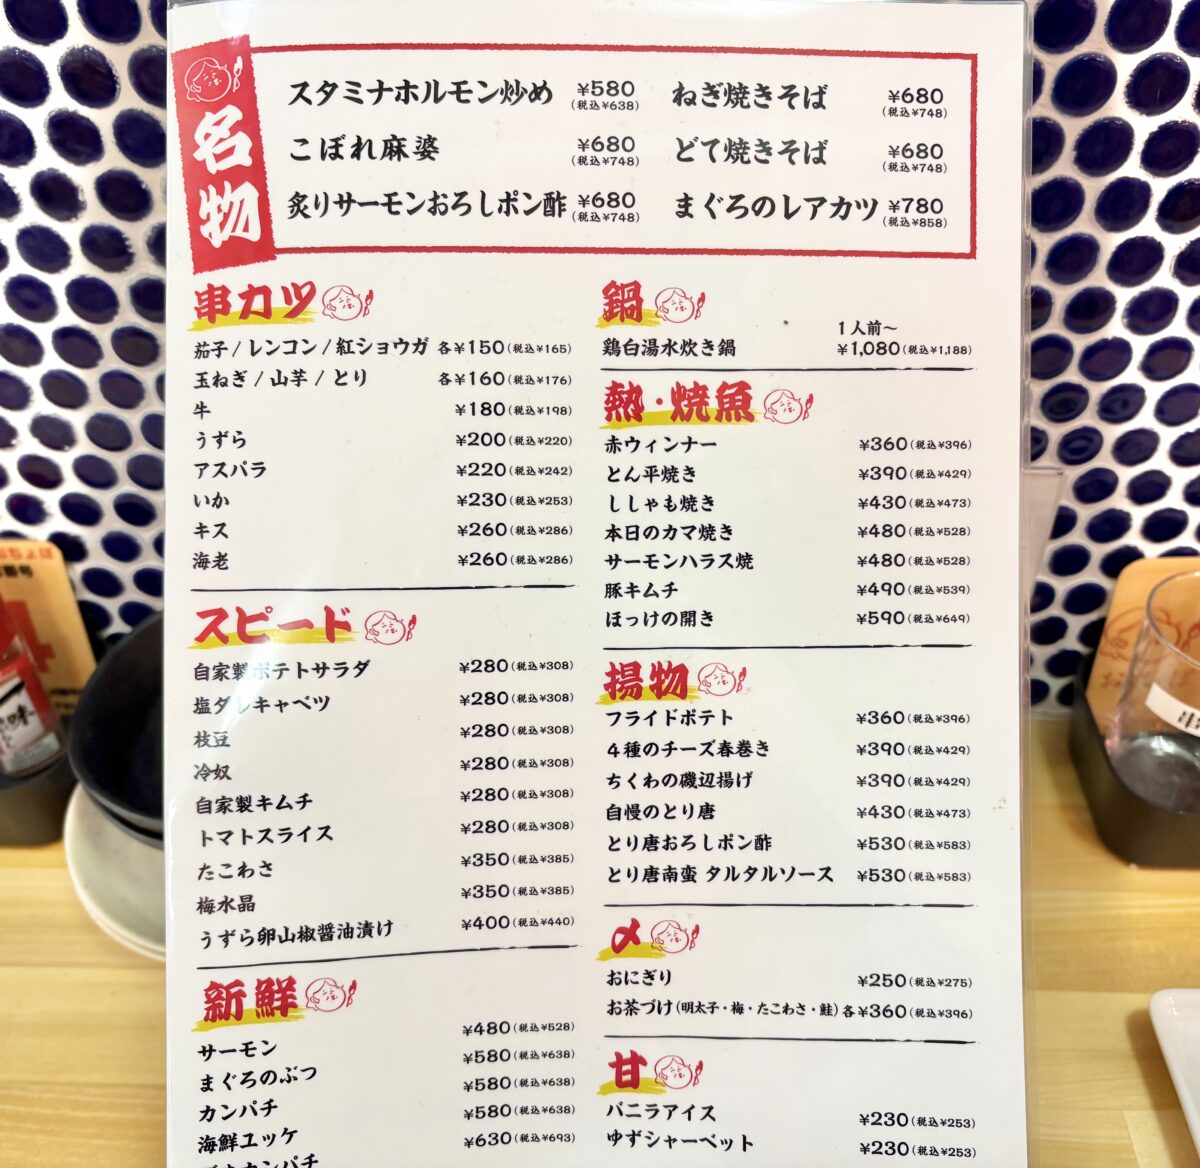 名物
スタミナホルモン炒め ¥580(税込¥638)
こぼれ麻婆 ¥680(税込¥748)
炙りサーモンおろしポン酢 ¥680(税込¥748)
ねぎ焼きそば ¥680(税込¥748)
どて焼きそば ¥680(税込¥748)
まぐろのレアカツ ¥780(税込¥858)
串カツ
茄子/レンコン/紅ショウガ 各¥150(税込¥165)
玉ねぎ/山芋/とり 各¥160(税込¥176)
牛 ¥180(税込¥198)
うずら ¥200(税込¥220)
アスパラ ¥220(税込¥242)
いか ¥230(税込¥253)
キス ¥260(税込¥286)
海老 ¥260(税込¥286)
スピード
自家製ポテトサラダ ¥280(税込¥308)
塩ダレキャベツ ¥280(税込¥308)
枝豆 ¥280(税込¥308)
冷奴 ¥280(税込¥308)
自家製キムチ ¥280(税込¥308)
トマトスライス ¥280(税込¥308)
たこわさ ¥350(税込¥385)
梅水晶 ¥350(税込¥385)
うずら卵山椒醤油漬け ¥400(税込¥440)
新鮮
サーモン ¥480(税込¥528)
まぐろのぶつ ¥580(税込¥638)
カンパチ ¥580(税込¥638)
海鮮ユッケ ¥580(税込¥638)
カンパチ ¥630(税込¥693)
鍋
1人前〜
鶏白湯水炊き鍋 ¥1,080(税込¥1,188)
熱・焼魚
赤ウィンナー ¥360(税込¥396)
とん平焼き ¥390(税込¥429)
ししゃも焼き ¥430(税込¥473)
本日のカマ焼き ¥480(税込¥528)
サーモンハラス焼 ¥480(税込¥528)
豚キムチ ¥490(税込¥539)
ほっけの開き ¥590(税込¥649)
揚物
フライドポテト ¥360(税込¥396)
4種のチーズ春巻き ¥390(税込¥429)
ちくわの磯辺揚げ ¥390(税込¥429)
自慢のとり唐 ¥430(税込¥473)
とり唐おろしポン酢 ¥530(税込¥583)
とり唐南蛮 タルタルソース ¥530(税込¥583)
〆
おにぎり ¥250(税込¥275)
お茶づけ(明太子・梅・たこわさ・鮭) 各¥360(税込¥396)
甘
バニラアイス ¥230(税込¥253)
ゆずシャーベット ¥230(税込¥253)
番号
味
串